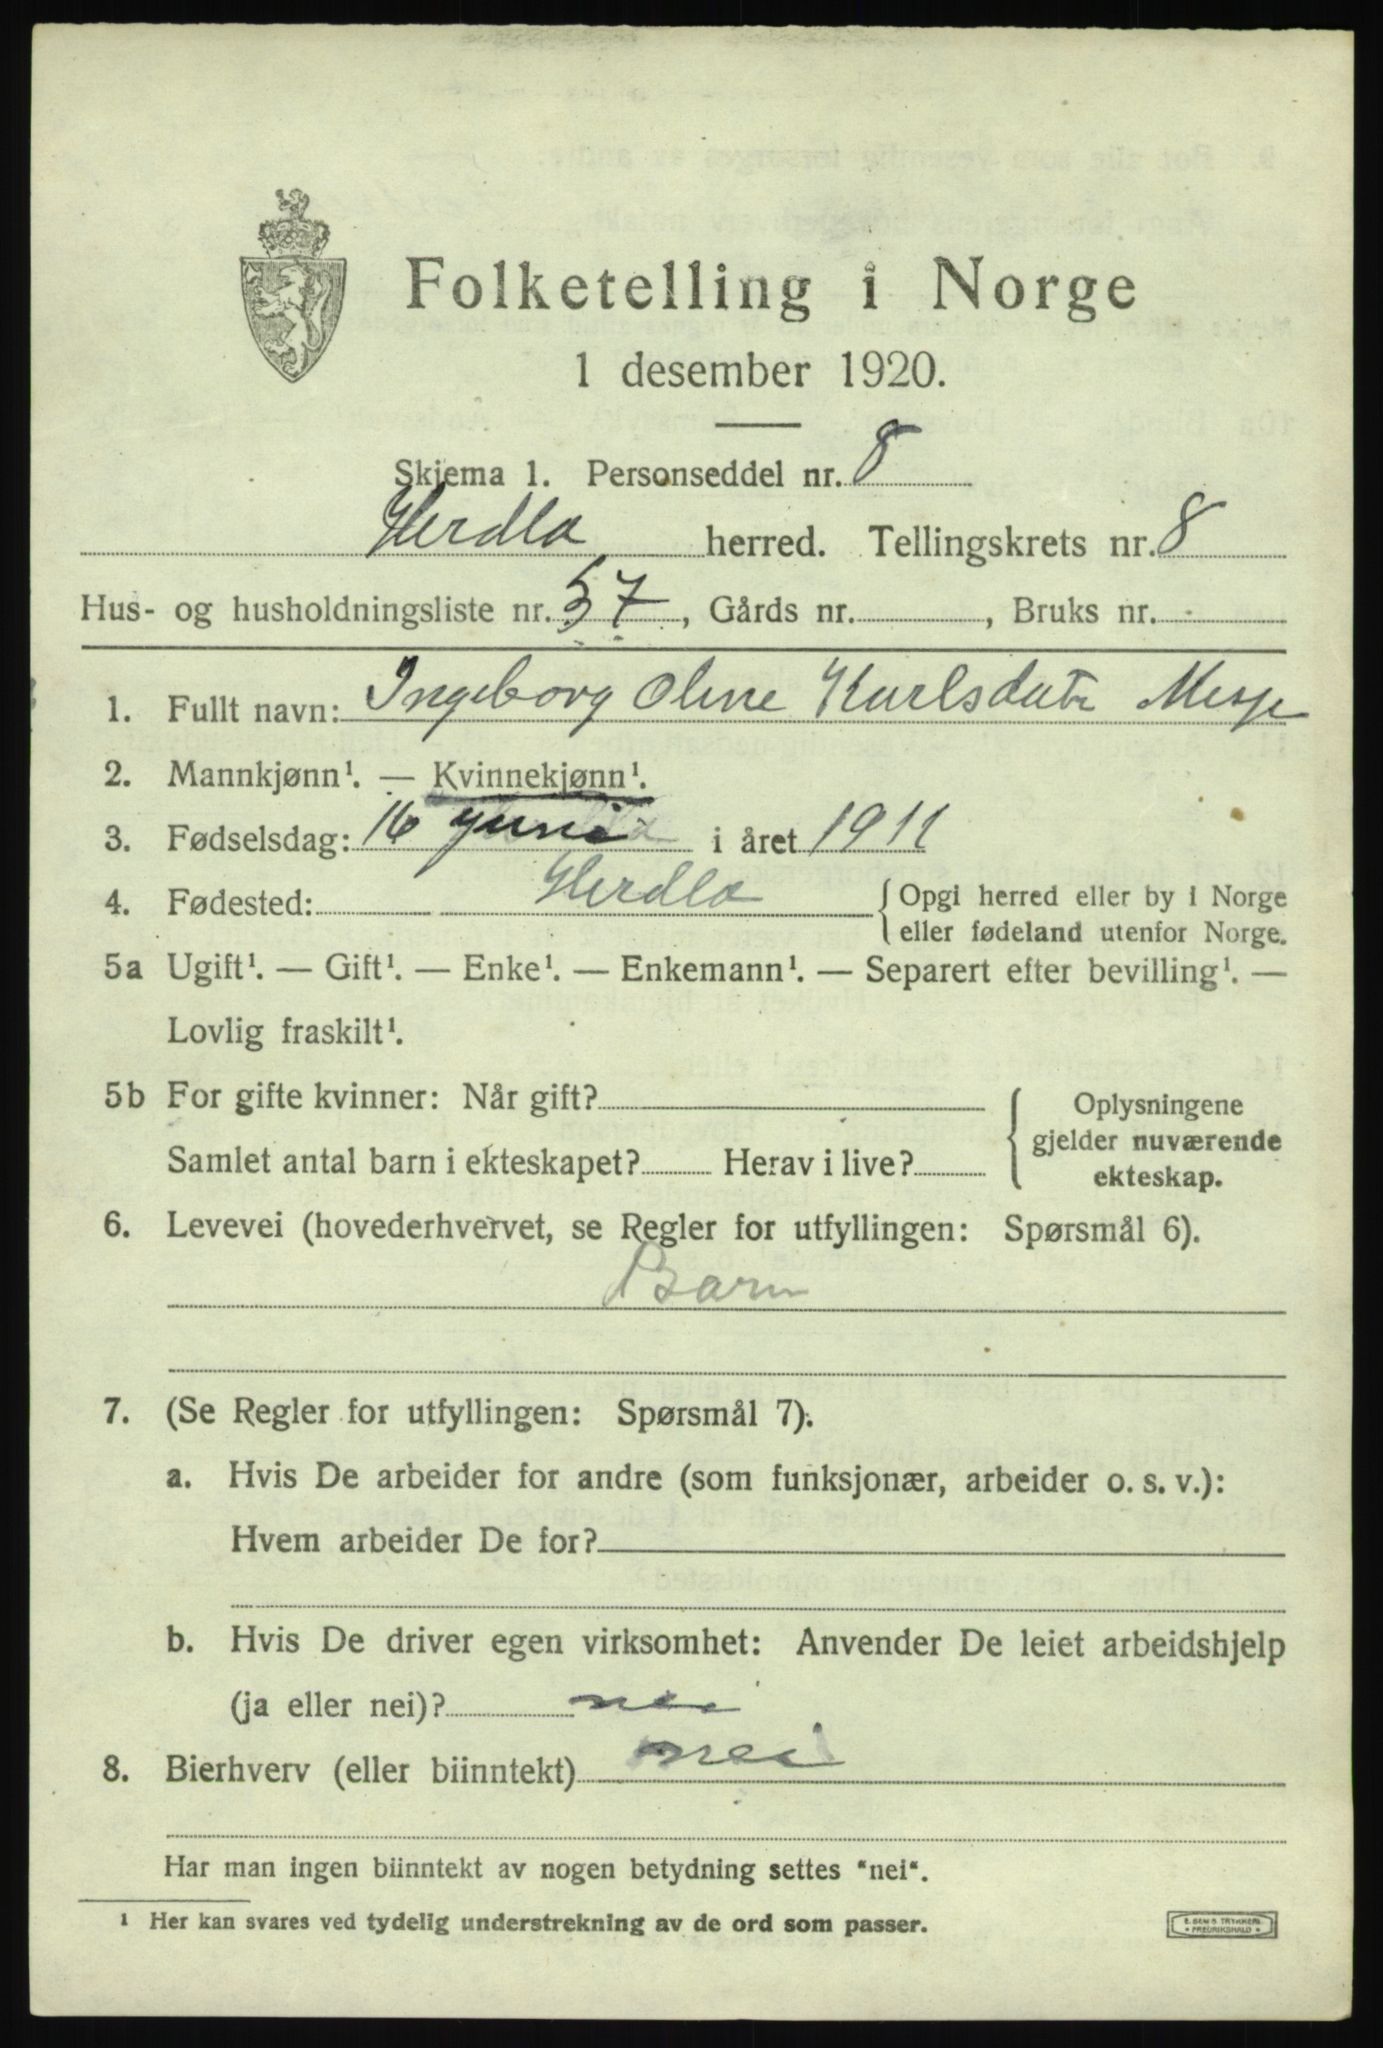 Folketelling i Norge
1 desember 1920.
Skjema 1. Personseddel nr. 8
Herdla herred. Tellingskrets nr. 8
Hus- og husholdningsliste nr. 57, Gårds nr. , Bruks nr.
1. Fullt navn: Ingeborg Oline Karlsdatr Misje
2. Mannkjønn¹. — Kvinnekjønn¹.
3. Fødselsdag: 16 juni i året 1911
4. Fødested: Herdla {Opgi herred eller by i Norge
eller fødeland utenfor Norge.
5a Ugift¹. — Gift¹. — Enke¹. — Enkemann¹. — Separert efter bevilling¹. —
Lovlig fraskilt¹.
5b For gifte kvinner: Når gift? { Oplysningene
gjelder nuværende
Samlet antal barn i ekteskapet? Herav i live?
ekteskap.
6. Levevei (hovederhvervet, se Regler for utfyllingen: Spørsmål 6).
Barn
7. (Se Regler for utfyllingen: Spørsmål 7).
a. Hvis De arbeider for andre (som funksjonær, arbeider o. s. v.):
Hvem arbeider De for?
b. Hvis De driver egen virksomhet: Anvender De leiet arbeidshjelp
(ja eller nei)? nei
8. Bierhverv (eller biinntekt) nei
Har man ingen biinntekt av nogen betydning settes "nei".
¹ Her kan svares ved tydelig understrekning av de ord som passer.